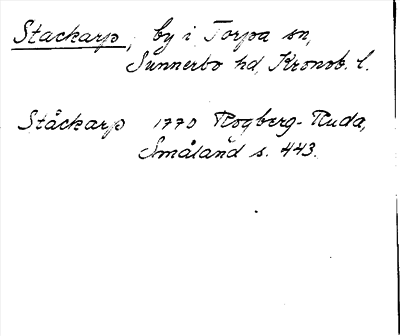 Stackarp, by i Torpa sn,
Sunnerbo hd, Kronob. l.
Stäckarp 1770 Rogberg-Ruda,
Småland s. 443.